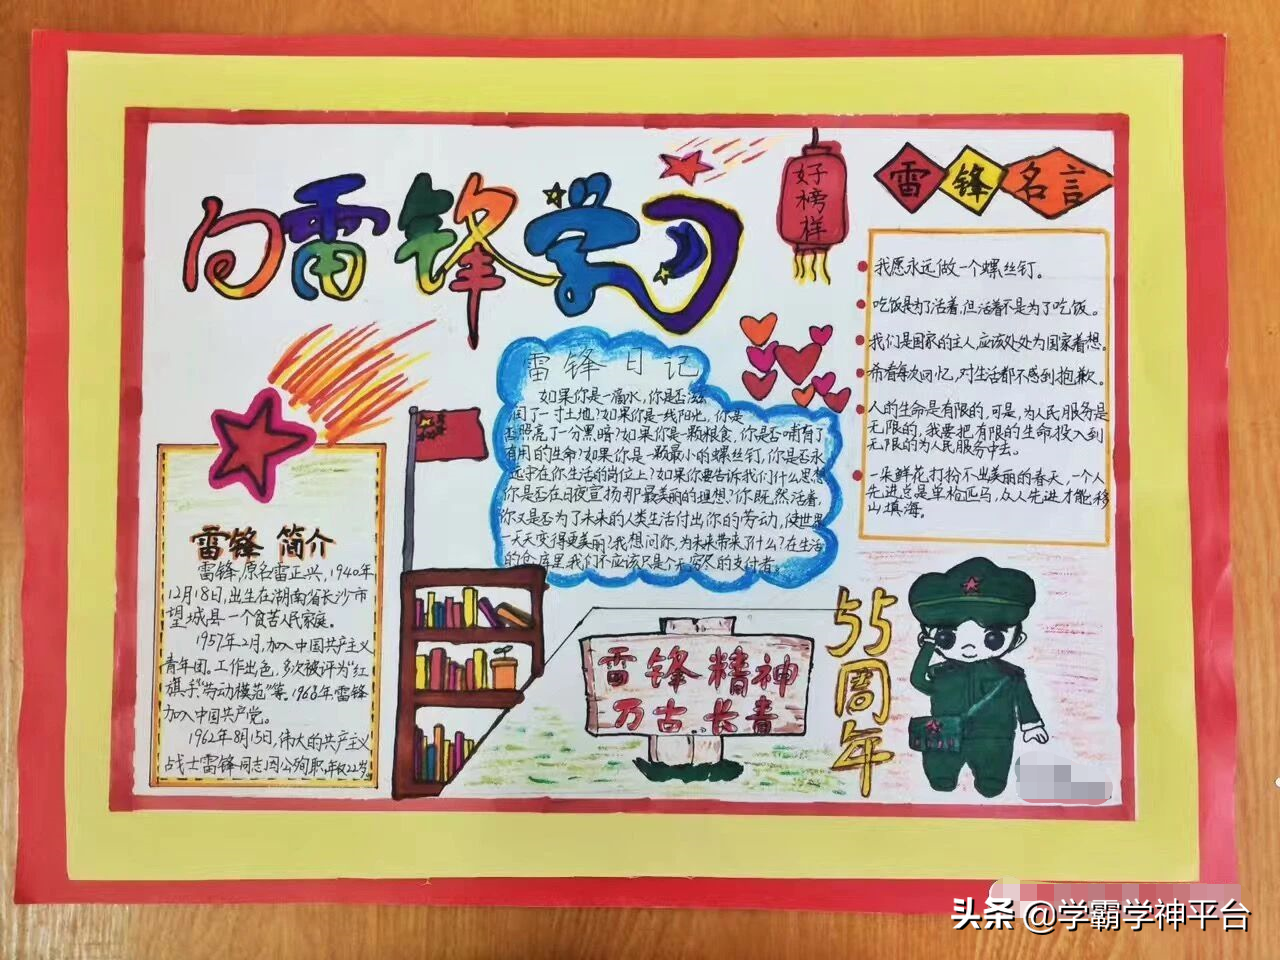 向雷锋学习
好榜样
雷锋名言
我愿永远做一个螺丝钉。
吃饭是为了活着,但活着不是为了吃饭。
我们是国家的主人,应该处处为国家着想。
希看每次回忆,对生活都不感到抱歉。
人的生命是有限的,可是,为人民服务是
无限的,我要把有限的生命投入到
无限的为人民服务中去。
一朵鲜花打扮不出美丽的春天,一个人
先进总是单枪匹马,众人先进才能移
山填海。
雷锋日记
如果你是一滴水,你是否滋
润了一寸土地?如果你是一线阳光,你是
否照亮了一分黑暗?如果你是一颗粮食,你是否哺育了
有用的生命?如果你是一颗最小的螺丝钉,你是否永
远守在你生活的岗位上?如果你要告诉我们什么思想
你是否在日夜宣扬那最美丽的理想?你既然活着,
你又是否为了未来的人类生活付出你的劳动,使世界
一天天变得更美丽?我想问你,为未来带来了什么?在生活
的仓库里,我们不应该只是个无穷尽的支付者。
雷锋 简介
雷锋,原名雷正兴,1940年
12月18日,出生在湖南省长沙市
望城县一个贫苦人民家庭。
1957年2月,加入中国共产主义
青年团。工作出色,多次被评为"红
旗手""劳动模范"等。1960年,雷锋
加入中国共产党。
1962年8月15日,伟大的共产主义
战士雷锋同志因公殉职,年仅22岁
雷锋精神
万古长青
55周年
头条 @学霸学神平台